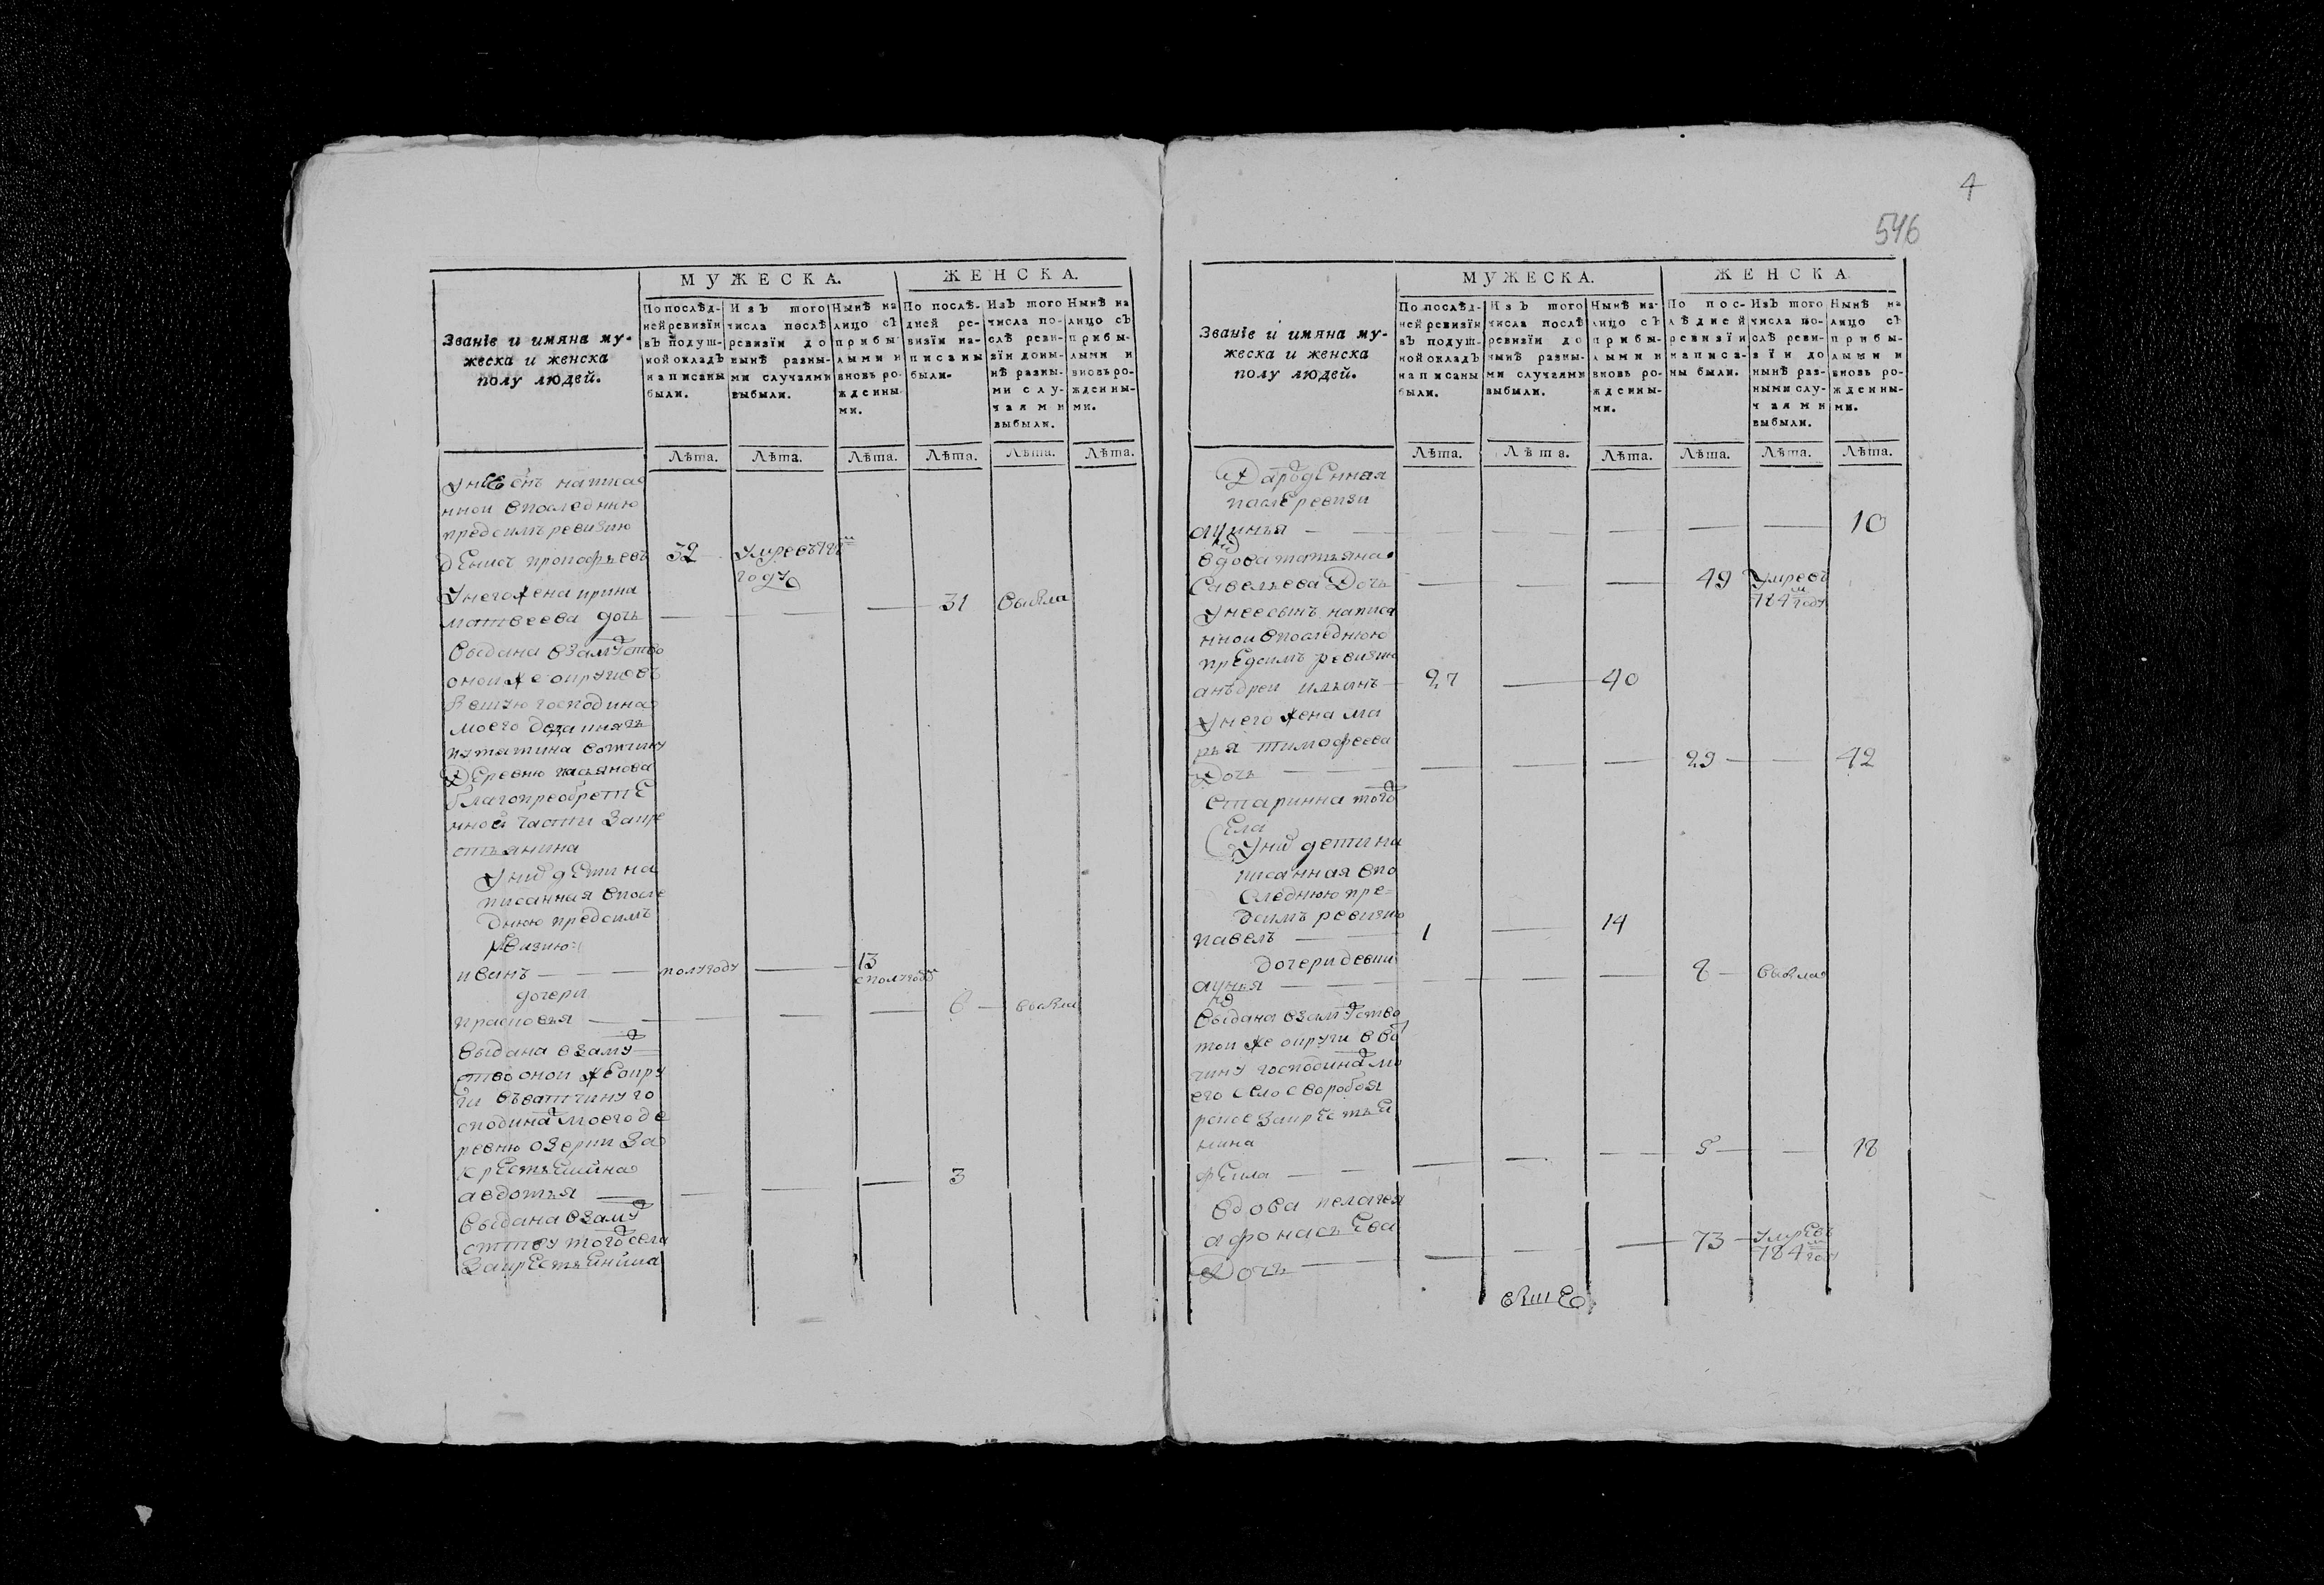 4
546
МУЖЕСКА. ЖЕНСКА.
Званїе и имяна му-
жеска и женска
полу людей.
По послѣд-
ней ревизїи
въ подуш-
ной окладъ
написаны
были.
Изъ того
числа послѣ
ревизїи до
нынѣ разны-
ми случаями
выбыли.
Нынѣ на
лицо съ
прибы-
лыми и
вновь ро-
жденны-
ми.
По послѣ-
дней ре-
визїи на-
писаны
были.
Изъ того
числа по-
слѣ реви-
зїи доны-
нѣ разны-
ми слу-
чаями
выбыли.
Нынѣ на
лицо съ
прибы-
лыми и
вновь ро-
жденны-
ми.
Лѣта. Лѣта. Лѣта. Лѣта. Лѣта. Лѣта.
нной впоследнюю
предсимъ ревизию
32 умре въ
году
У него жена ирина
матвеева дочь 31 выбыла
выдана взамужство
оной же округи въ
господина
моего
вотчину
Деревню
благопреобрете
нной части за кре
стьянина
У них дети на
писанная впосле
днюю предсимъ
ревизию
иванъ полугоду 13 с полугоду
дочери
прасковья 8 выбыла
выдана взаму
ство оной же окру
ги въ вотчину го
сподина моего де
ревню озерки за
крестьянина
авдотья 3
выдана взаму
ству того села
за крестьянина
МУЖЕСКА. ЖЕНСКА.
Званїе и имяна му-
жеска и женска
полу людей.
По послѣд-
ней ревизїи
въ подуш-
ной окладъ
написаны
были.
Изъ того
числа послѣ
ревизїи до
нынѣ разны-
ми случаями
выбыли.
Нынѣ на-
лицо съ
прибы-
лыми и
вновь ро-
жденны-
ми.
По пос-
лѣдней
ревизїи
написа-
ны были.
Изъ того
числа по-
слѣ реви-
зїи до
нынѣ раз-
ными слу-
чаями
выбыли.
Нынѣ на
лицо съ
прибы-
лыми и
вновь ро-
жденны-
ми.
Лѣта. Лѣта. Лѣта. Лѣта. Лѣта. Лѣта.
после ревизи
10
вдова татьяна
Савельева Дочь 49 умре въ
784м году
У нее сынъ написа
нной впоследнюю
предсимъ ревизию
анъдреи ильинъ 27 40
У него жена ма
рья тимофеева
Дочь 29 42
старинна того
села
У них дети на
писанная впо
следнюю пре=
дсимъ ревизию
павелъ 1 14
дочери девки
8 выбыла
выдана взамужство
той же округи в во
чину господина мо
его село
за крестья
нина
фекла 5 18
вдова пелагея
афонасьева
Дочь 73 умре въ
784м году